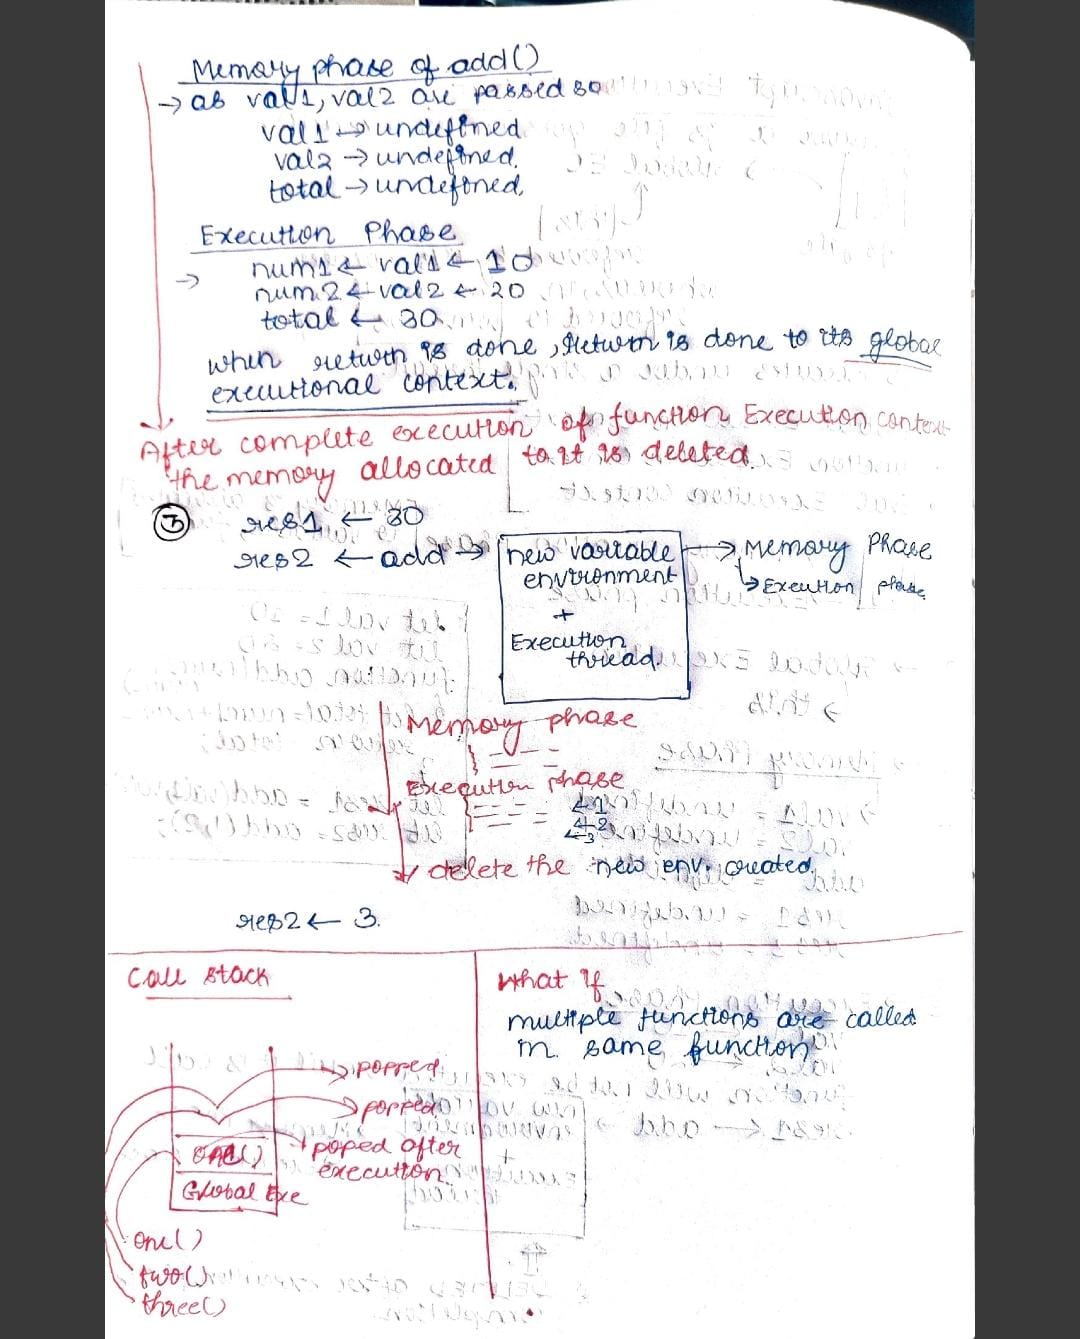 Memory phase of add()
→ as val1, val2 are passed so
val1 → undefined
val2 → undefined.
total → undefined.
Execution Phase
→ num1 ← val1 ← 10
num2 ← val2 ← 20
total ← 30
when return is done, return is done to its global
executional context.
After complete execution of function Execution context
the memory allocated to it is deleted.
③ res1 ← 30
res2 ← add → new variable → Memory Phase
environment ↳ Execution phase
+
Execution
thread.
Memory phase
Execution phase
← 1
← 2
← 3
delete the new env. created.
res2 ← 3.
Call stack
→ popped
→ popped
→ poped after
execution.
one()
Global Exe
one()
two()
three()
What if
multiple functions are called
in same function